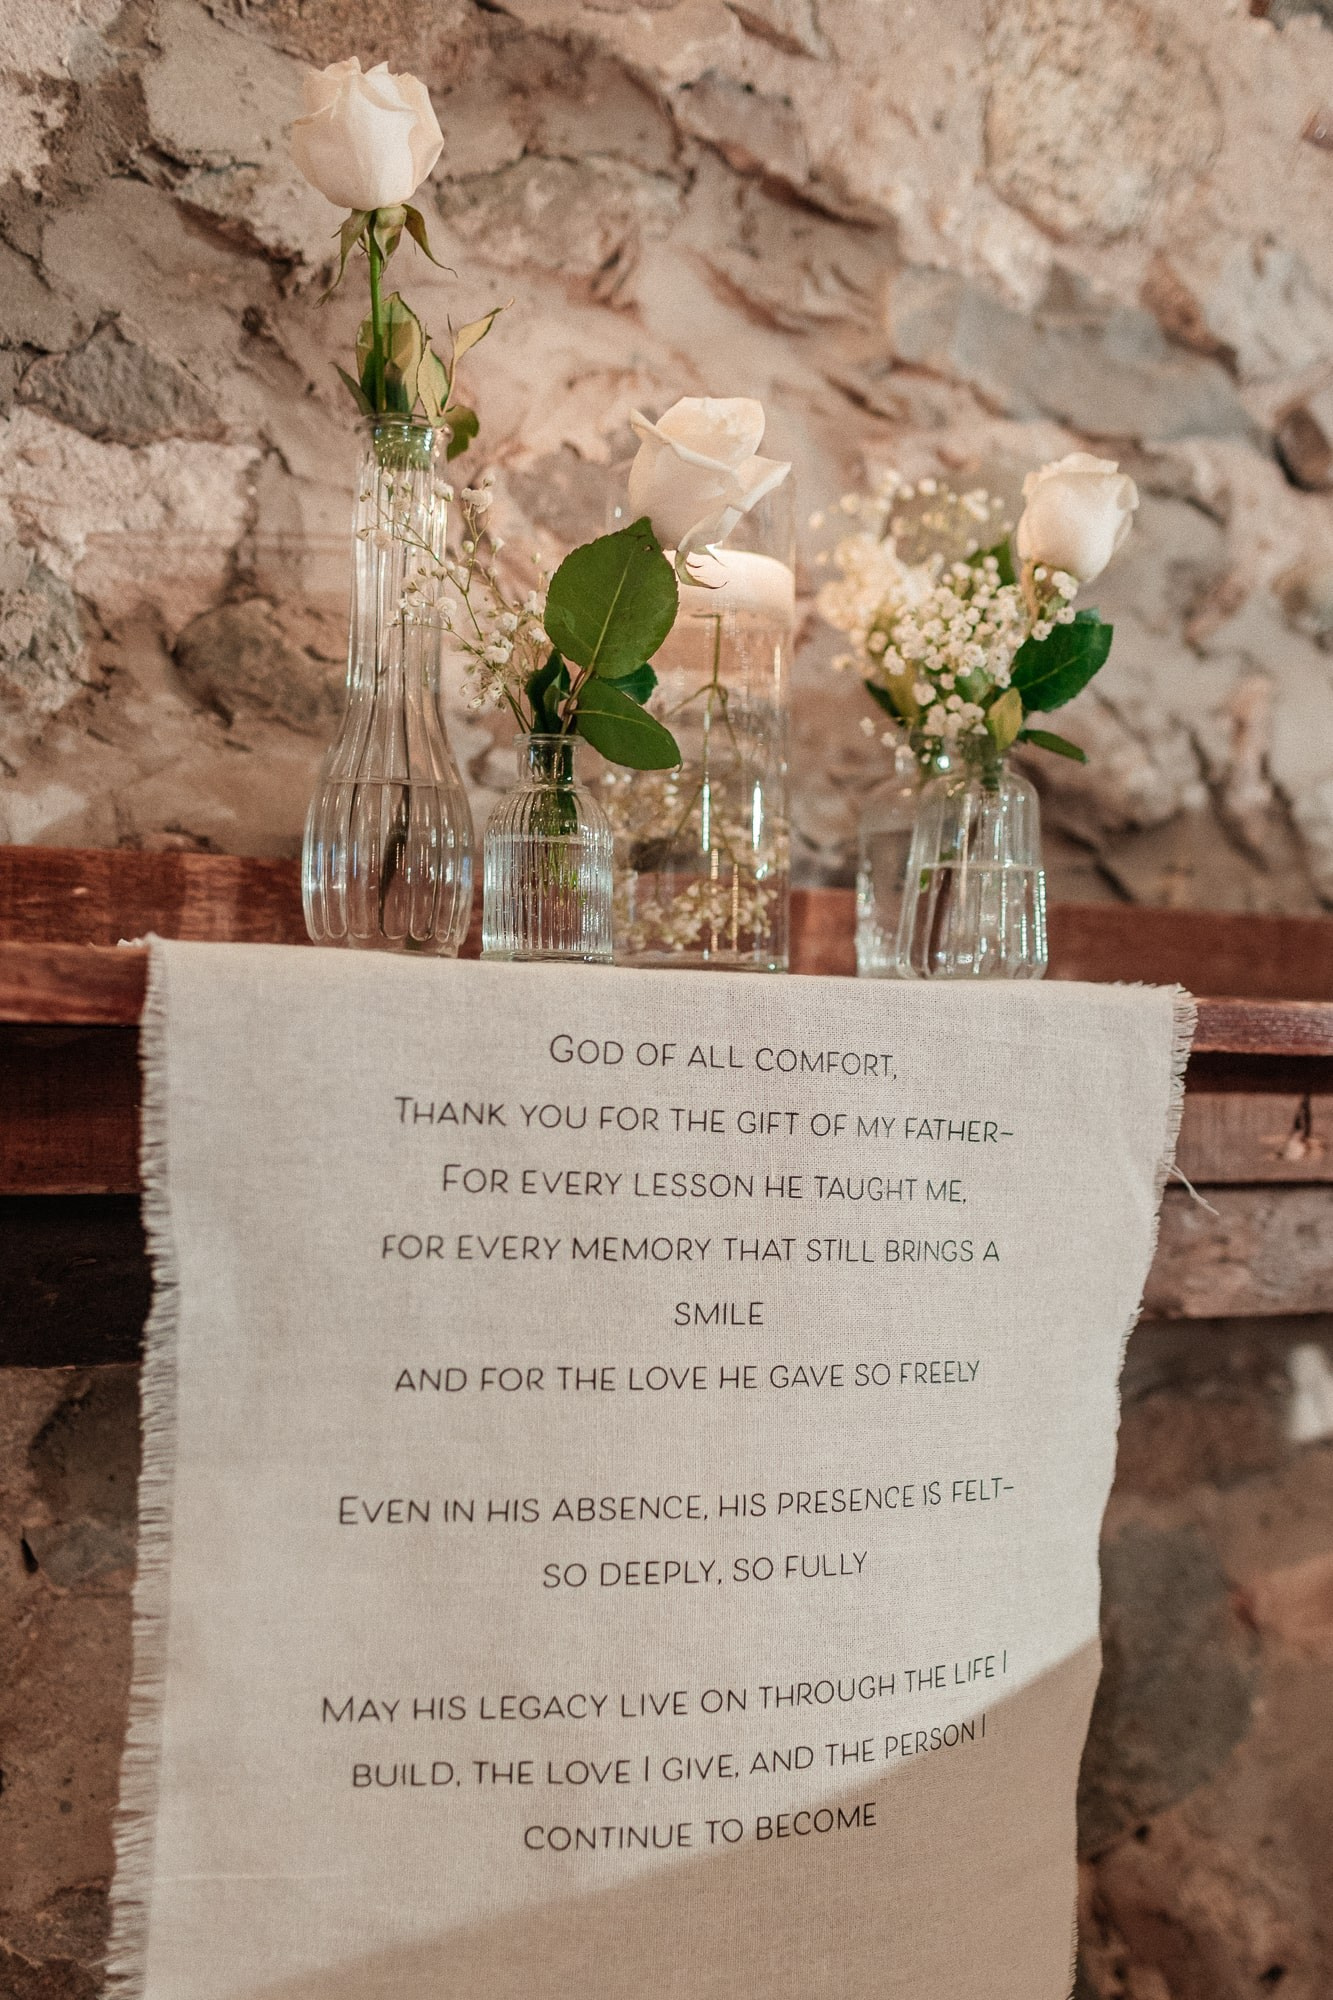 GOD OF ALL COMFORT,
THANK YOU FOR THE GIFT OF MY FATHER–
FOR EVERY LESSON HE TAUGHT ME,
FOR EVERY MEMORY THAT STILL BRINGS A
SMILE
AND FOR THE LOVE HE GAVE SO FREELY
EVEN IN HIS ABSENCE, HIS PRESENCE IS FELT–
SO DEEPLY, SO FULLY
MAY HIS LEGACY LIVE ON THROUGH THE LIFE I
BUILD, THE LOVE I GIVE, AND THE PERSON I
CONTINUE TO BECOME